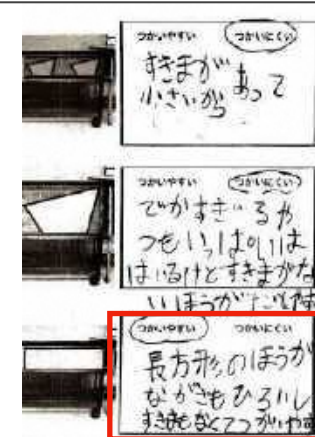 つかいやすい つかいにくい
すきまが あって
小さいから
つかいやすい つかいにくい
でかすぎいるや
つもいっぱいは
はいるけどすきまがな
いほうが
つかいやすい つかいにくい
長方形のほうが
ながさもひろいし
すきまもなくてつかいやす